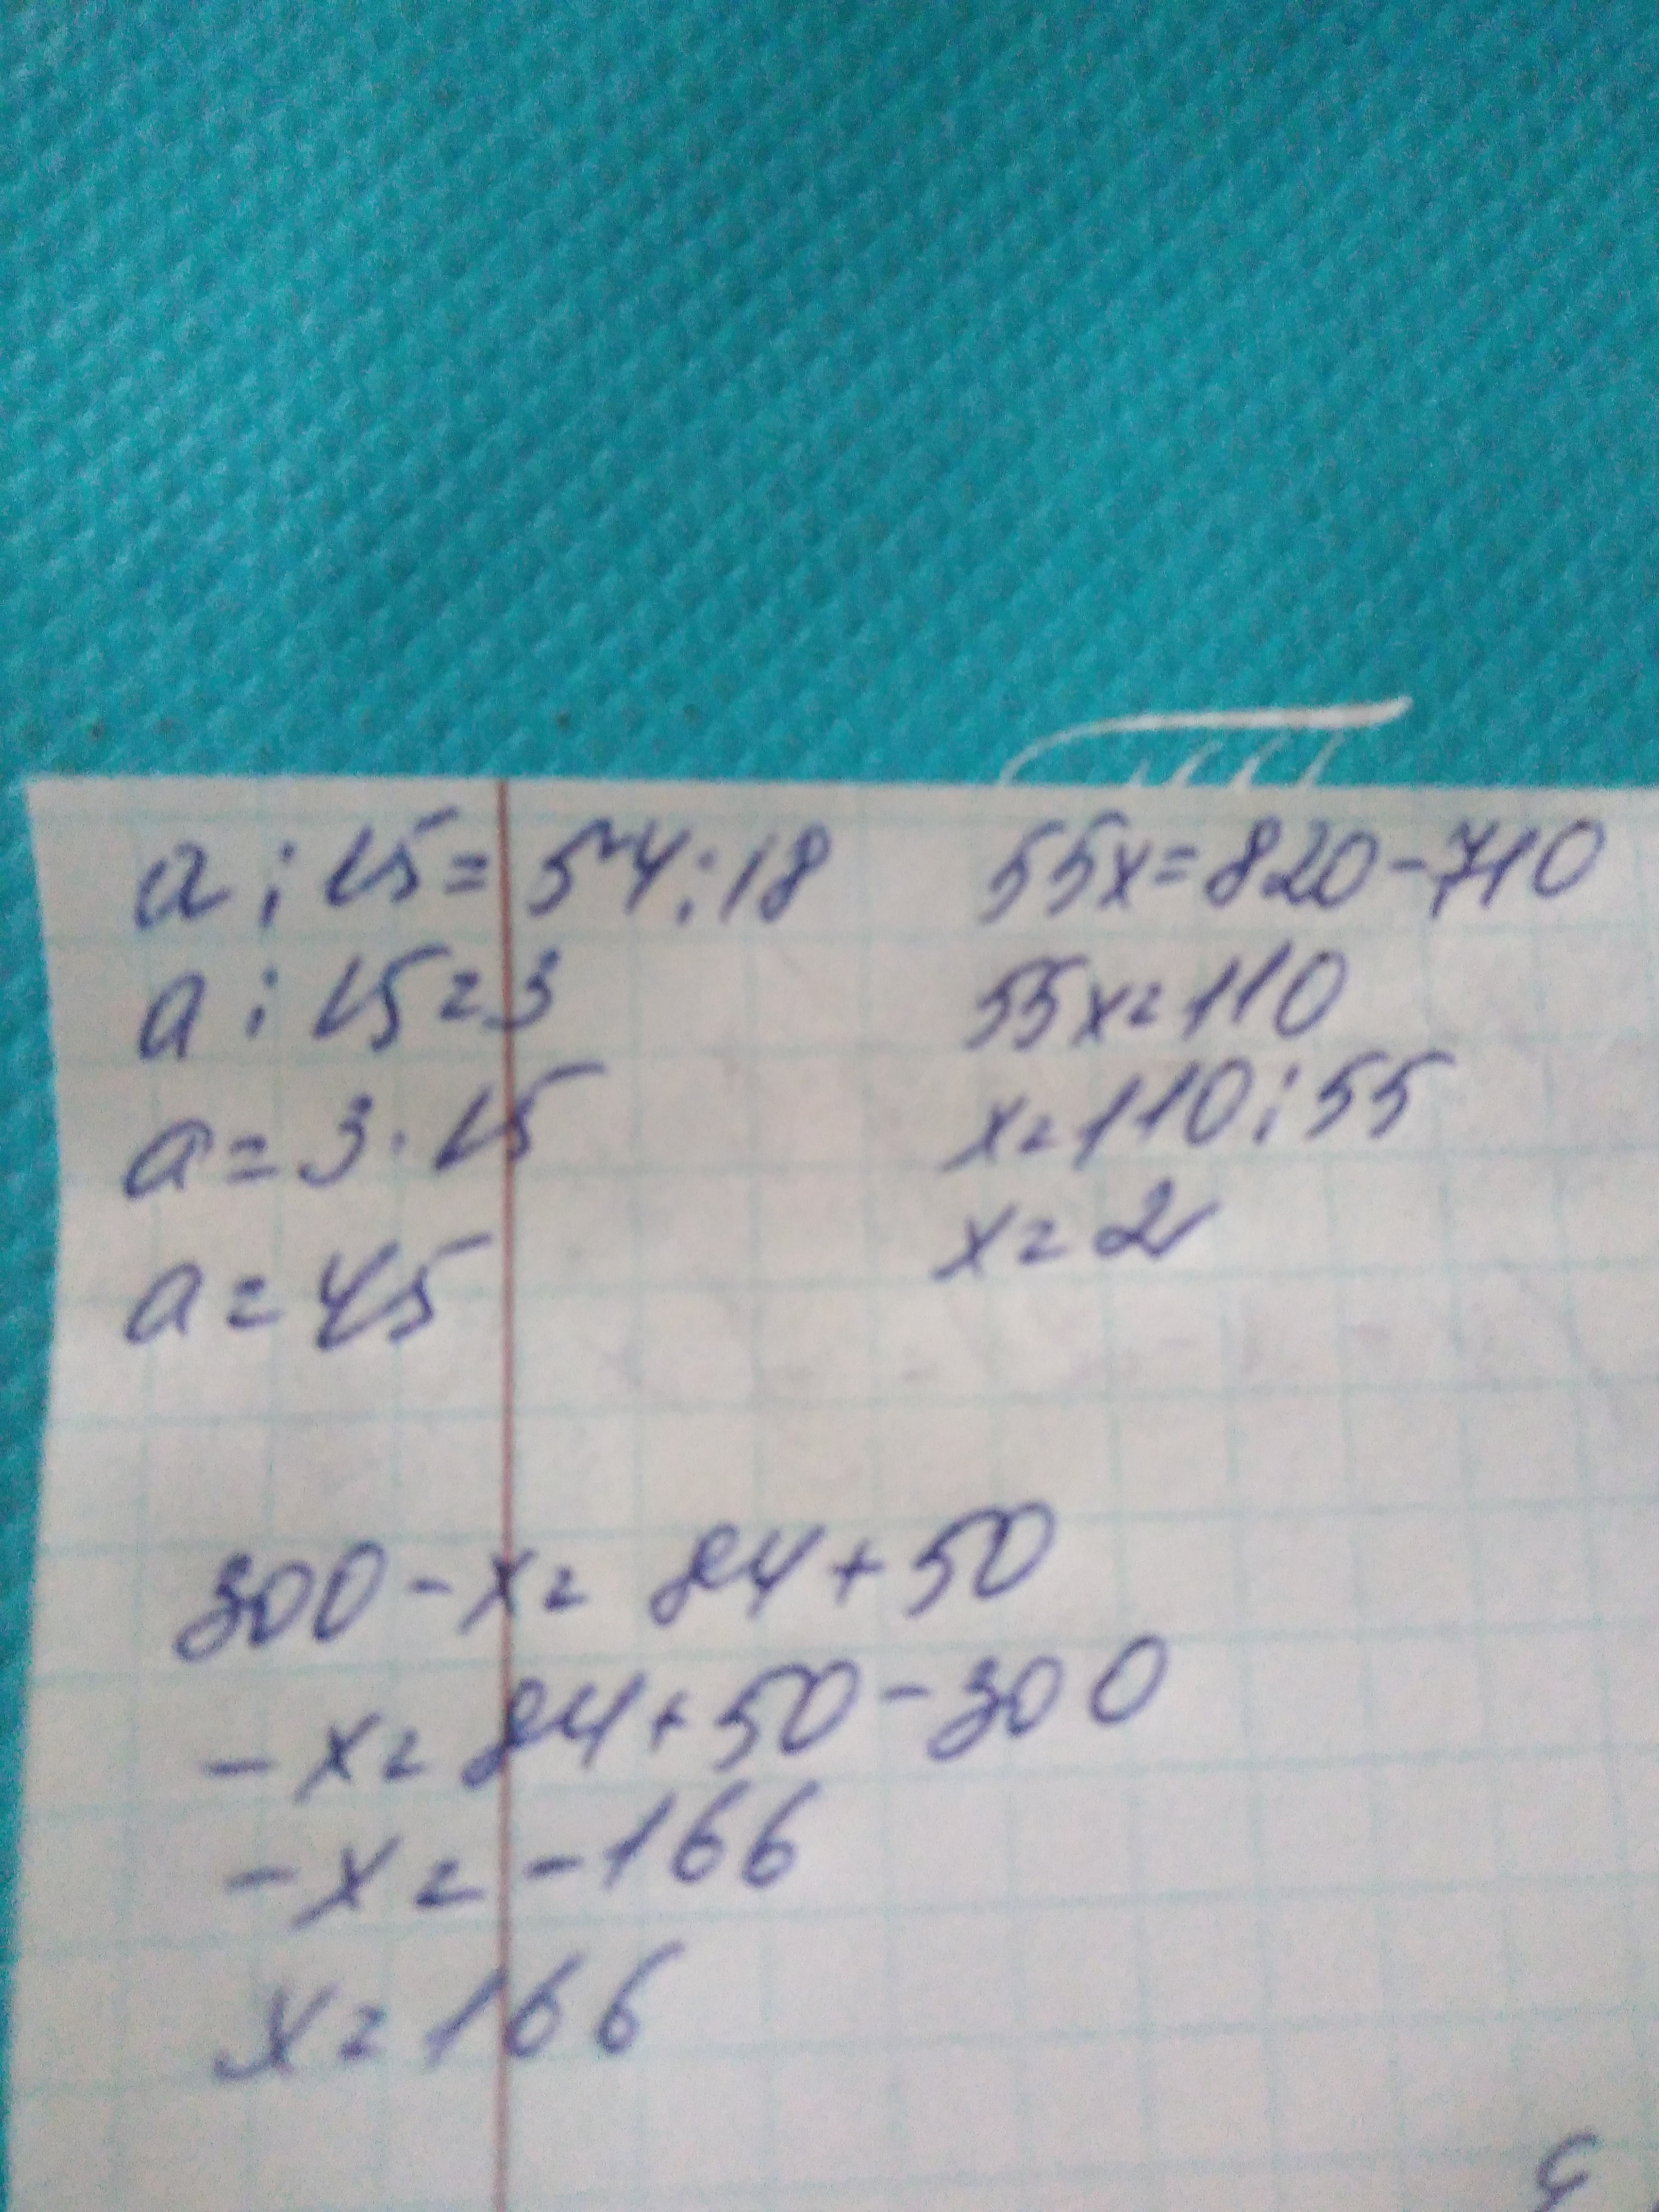 a : 15 = 54 : 18
a : 15 = 3
a = 3 · 15
a = 45
55x = 820 - 710
55x = 110
x = 110 : 55
x = 2
300 - x = 84 + 50
- x = 84 + 50 - 300
- x = - 166
x = 166